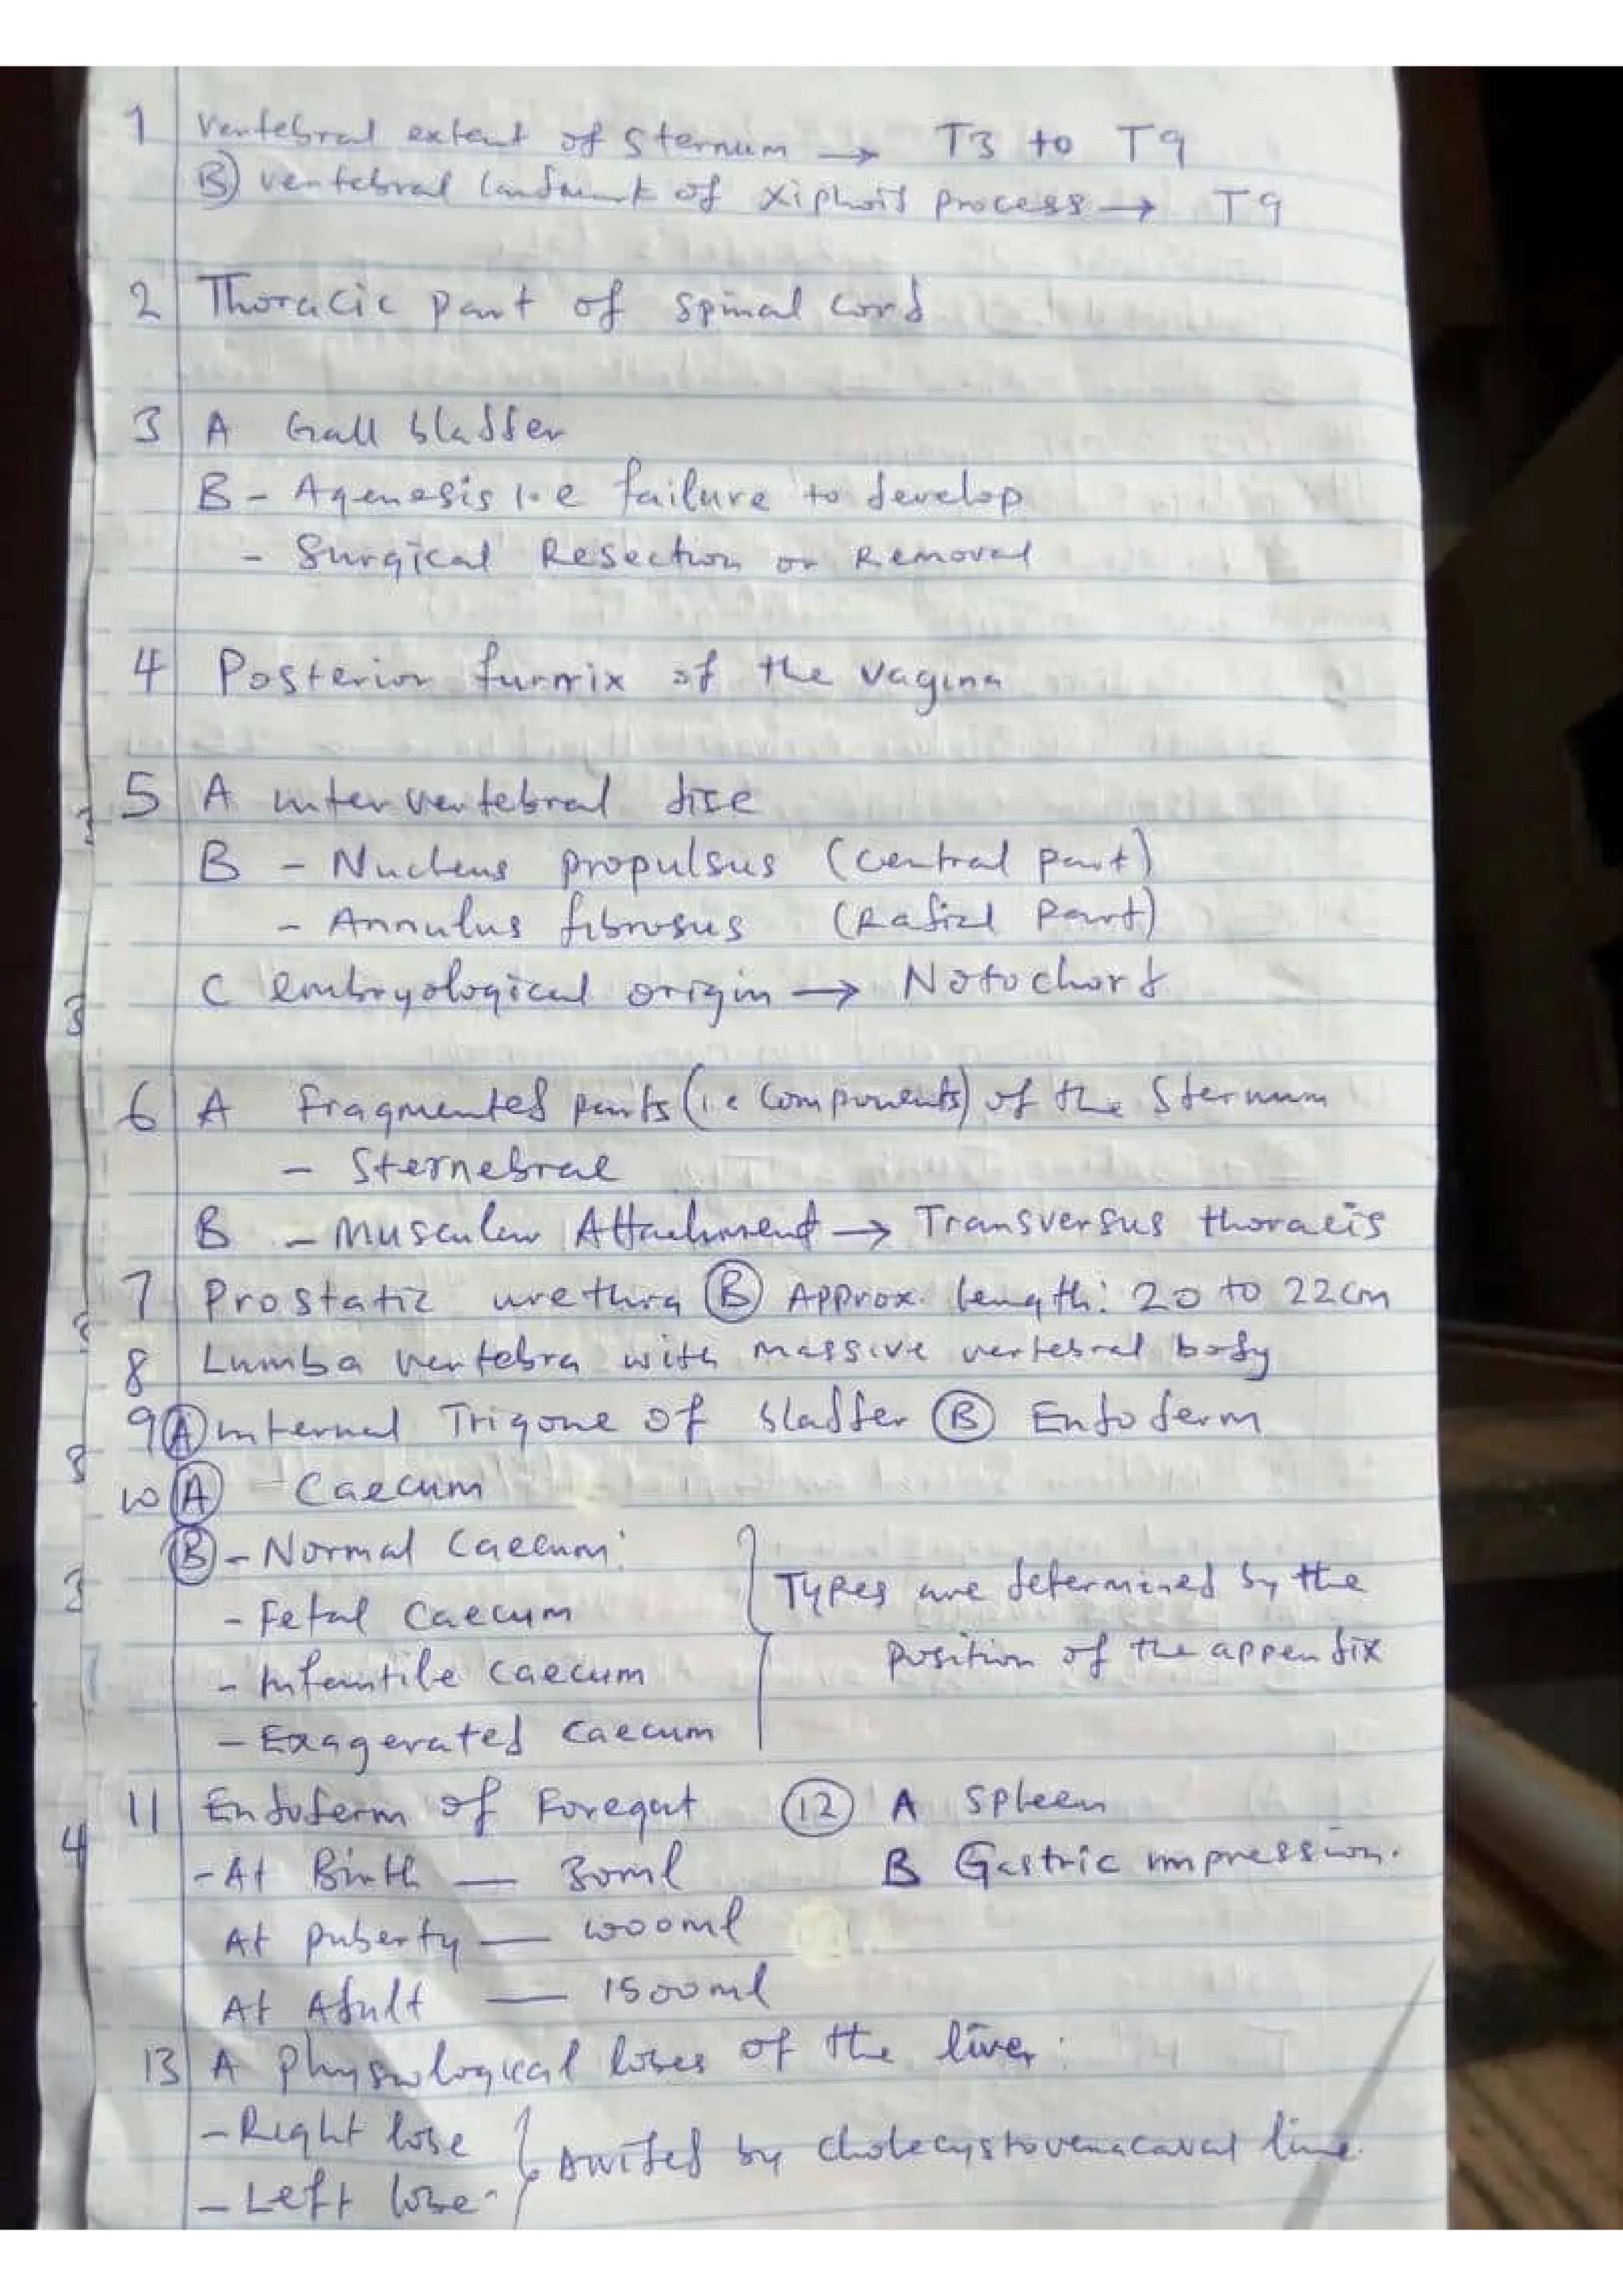 1 Vertebral extent of sternum → T3 to T9
B) vertebral landmark of xiphoid process → T9
2 Thoracic part of spinal cord
3 A Gall bladder
B - Agenesis i.e failure to develop
- Surgical Resection or Removal
4 Posterior furnix of the vagina
5 A intervertebral disc
B - Nucleus propulsus (central part)
- Annulus fibrosus (Radial part)
C embryological origin → Notochord
6 A Fragmented parts (i.e components) of the sternum
- Sternebrae
B - Muscular Attachment → Transversus thoracis
7 Prostatic urethra B Approx. length: 20 to 22cm
8 Lumba vertebra with massive vertebral body
9 A internal Trigone of bladder B Endoderm
10 A - Caecum
B - Normal Caecum:
- Fetal Caecum
- Infantile caecum
- Exagerated caecum
Types are determined by the
position of the appendix
11 Endoderm of Foregut
- At Birth — 30ml
At puberty — 1000ml
At Adult — 1500ml
12 A Spleen
B Gastric impression.
13 A Physiological lobes of the liver:
- Right lobe
- Left lobe
divided by cholecystovenacaval line.
3
3
2
8
3
4